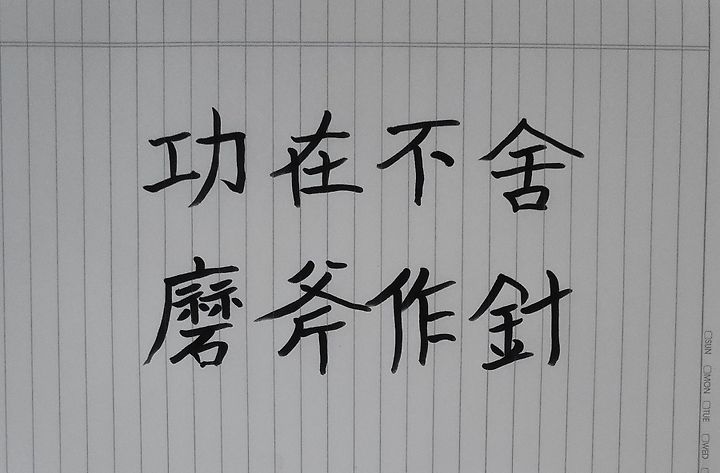 功在不舍
磨斧作針
SUN
MON
TUE
WED